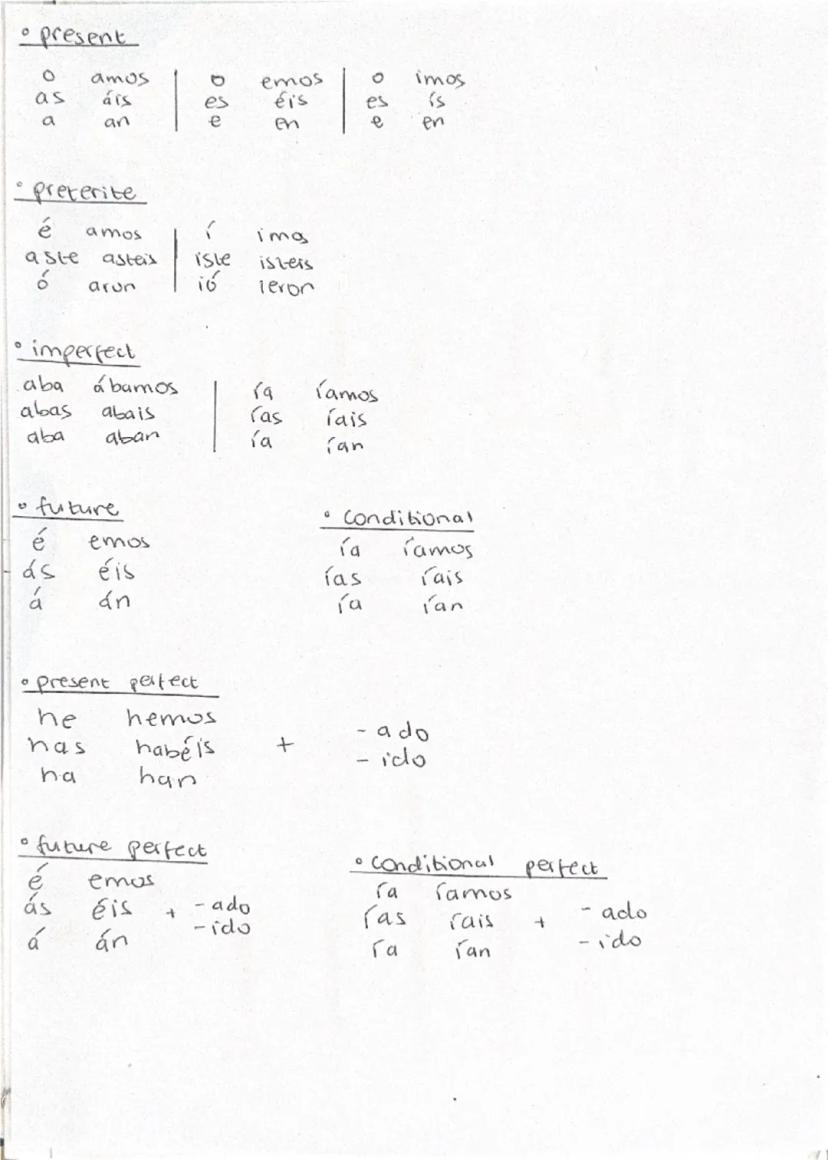 ° present
o amos | o emos | o imos
as áis | es éis | es ís
a an | e en | e en
° preterite
é amos | í imos
aste asteis | iste isteis
ó aron | ió ieron
° imperfect
aba ábamos | ía íamos
abas abais | ías íais
aba aban | ía ían
° future
é emos
ás éis
á án
° conditional
ía íamos
ías íais
ía ían
° present perfect
he hemos
has habéis + - ado
ha han - ido
° future perfect
é emos
ás éis + - ado
á án - ido
° conditional perfect
ía íamos
ías íais + - ado
ía ían - ido